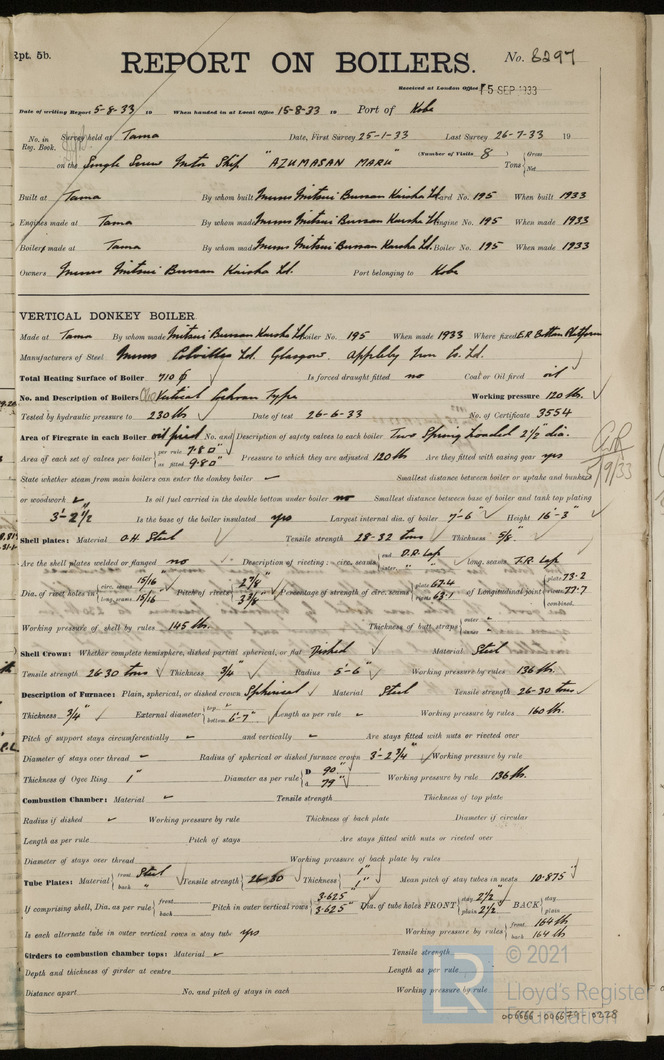 Rpt. 5b.
REPORT ON BOILERS.
No. 8297
Received at London Office 15 SEP 1933
Date of writing Report 5-8-33 19 When handed in at Local Office 15-8-33 19 Port of Kobe
No. in Reg. Book. Survey held at Tama Date, First Survey 25-1-33 Last Survey 26-7-33 19
on the Single Screw Motor Ship "AZUMASAN MARU" (Number of Visits 8) Tons { Gross Net
Built at Tama By whom built Messrs Mitsui Bussan Kaisha Ld. Yard No. 195 When built 1933
Engines made at Tama By whom made Messrs Mitsui Bussan Kaisha Ld. Engine No. 195 When made 1933
Boilers made at Tama By whom made Messrs Mitsui Bussan Kaisha Ld. Boiler No. 195 When made 1933
Owners Messrs Mitsui Bussan Kaisha Ld. Port belonging to Kobe
VERTICAL DONKEY BOILER
Made at Tama By whom made Mitsui Bussan Kaisha Ld. Boiler No. 195 When made 1933 Where fixed E.R. Bottom Platform
Manufacturers of Steel Messrs Colvilles Ld. Glasgow. Appleby Iron Co. Ld.
Total Heating Surface of Boiler 710 ф Is forced draught fitted no Coal or Oil fired oil
No. and Description of Boilers One Vertical Cochran Type Working pressure 120 lbs.
Tested by hydraulic pressure to 230 lbs Date of test 26-6-33 No. of Certificate 3554
Area of Firegrate in each Boiler oil fired No. and Description of safety valves to each boiler Two Spring Loaded 2½ dia.
Area of each set of valves per boiler { per rule 7.80" as fitted 9.80" Pressure to which they are adjusted 120 lb Are they fitted with easing gear yes
State whether steam from main boilers can enter the donkey boiler ✓ Smallest distance between boiler or uptake and bunkers
or woodwork ✓ Is oil fuel carried in the double bottom under boiler no Smallest distance between base of boiler and tank top plating
3'-2½ Is the base of the boiler insulated yes Largest internal dia. of boiler 7'-6" Height 16'-3"
Shell plates: Material O.H. Steel Tensile strength 28-32 tons Thickness 5/8"
Are the shell plates welded or flanged no Description of riveting: circ. seams { end D.R. Lap inter. " " long. seams T.R. Lap
Dia. of rivet holes in { circ. seams 15/16" long. seams 15/16" Pitch of rivets { 2 7/8" 3 3/8" Percentage of strength of circ. seams { plate 67.4 rivets 63.1 of Longitudinal joint { plate 73.2 rivets 77.7 combined.
Working pressure of shell by rules 145 lbs. Thickness of butt straps { outer inner
Shell Crown: Whether complete hemisphere, dished partial spherical, or flat Dished Material Steel
Tensile strength 26-30 tons Thickness 3/4" Radius 5'-6" Working pressure by rules 136 lbs.
Description of Furnace: Plain, spherical, or dished crown Spherical Material Steel Tensile strength 26-30 tons
Thickness 3/4" External diameter { top " bottom 6'-7" Length as per rule ✓ Working pressure by rules 160 lbs.
Pitch of support stays circumferentially ✓ and vertically ✓ Are stays fitted with nuts or riveted over
Diameter of stays over thread ✓ Radius of spherical or dished furnace crown 3'-2¾" Working pressure by rule
Thickness of Ogee Ring 1" Diameter as per rule { D 90" d 79" Working pressure by rule 136 lb.
Combustion Chamber: Material ✓ Tensile strength Thickness of top plate
Radius if dished ✓ Working pressure by rule Thickness of back plate Diameter if circular
Length as per rule Pitch of stays Are stays fitted with nuts or riveted over
Diameter of stays over thread Working pressure of back plate by rules
Tube Plates: Material { front Steel back " Tensile strength { 26-30 Thickness { 1" 1" Mean pitch of stay tubes in nests 10.875"
If comprising shell, Dia. as per rule { front back Pitch in outer vertical rows { 3.625" 3.625" Dia. of tube holes FRONT { stay 2½" plain 2½ BACK { stay plain
Is each alternate tube in outer vertical rows a stay tube yes Working pressure by rules { front 164 lb back 164 lb
Girders to combustion chamber tops: Material ✓ Tensile strength
Depth and thickness of girder at centre Length as per rule
Distance apart No. and pitch of stays in each Working pressure by rule
5/9/33
© 2021
LR
Lloyd's Register
Foundation
006666-006679-0228